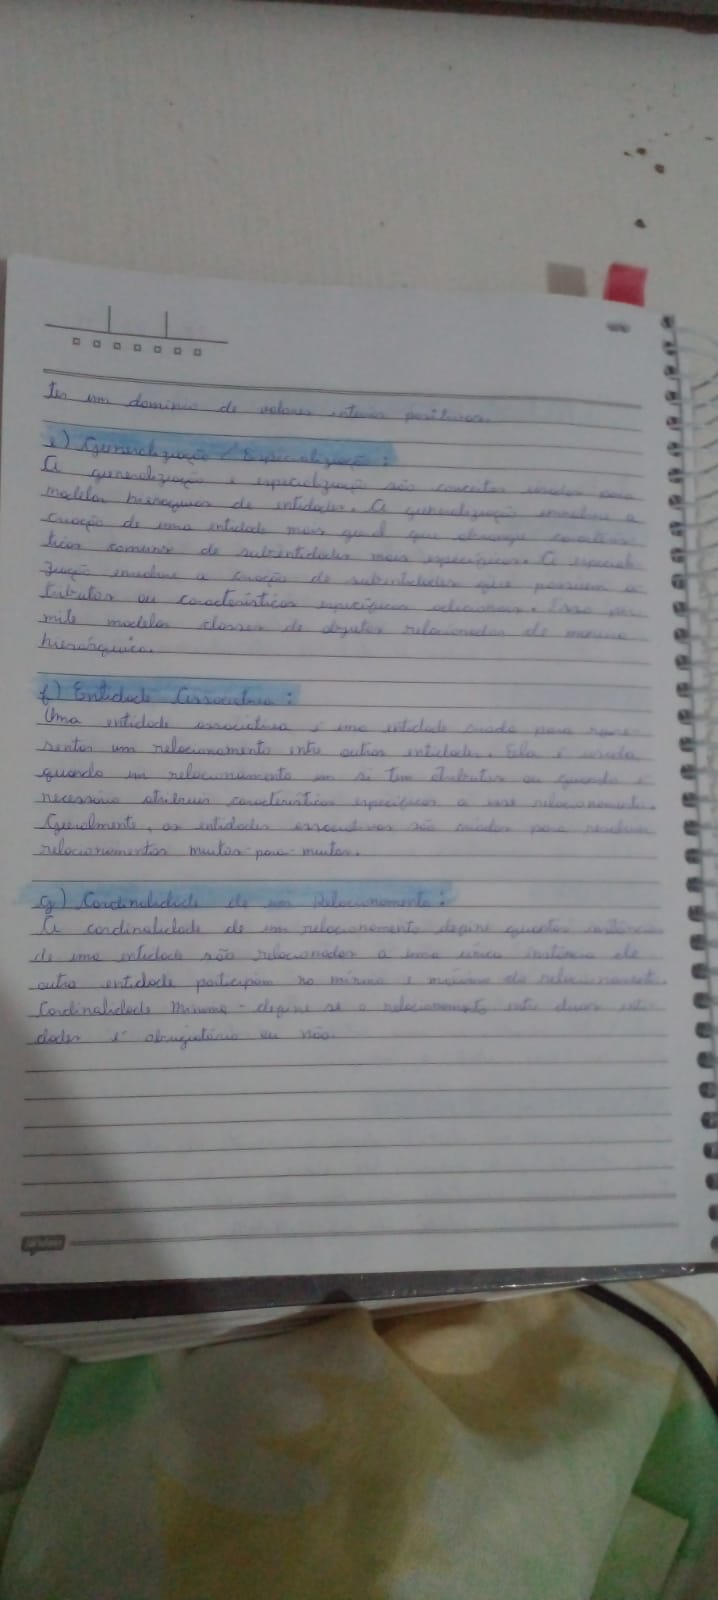 ter um dominio de valores inteiros positivos.
e) Generalização / Especialização:
A generalização e especialização são conceitos usados para
modelar hierarquias de entidades. A generalização envolve a
criação de uma entidade mais geral que abrange caracterís-
ticas comuns de subentidades mais específicas. A especiali-
zação envolve a criação de subentidades que possuem a-
tributos ou características específicas adicionais. Isso per-
mite modelar classes de objetos relacionados de maneira
hierárquica.
f) Entidade Associativa:
Uma entidade associativa é uma entidade criada para repre-
sentar um relacionamento entre outras entidades. Ela é usada
quando um relacionamento em si tem atributos ou quando é
necessário atribuir características específicas a esse relacionamento.
Geralmente, as entidades associativas são criadas para resolver
relacionamentos muitos-para-muitos.
g) Cardinalidade de um Relacionamento:
A cardinalidade de um relacionamento define quantas instâncias
de uma entidade são relacionadas a uma única instância de
outra entidade participam no mínimo e máximo do relacionamento.
Cardinalidade Mínima - define se o relacionamento entre duas enti-
dades é obrigatório ou não.